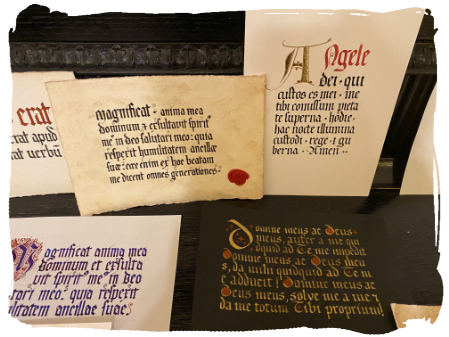 erat
erat apud
rat verbū
magnificat · anima mea
dominum & exsultavit spirit9
me9 in deo salutari meo: quia
respexit humilitatem ancillae
suae: ecce enim ex hoc beatam
me dicent omnes generationes·
Angele
dei · qui
custos es mei · me
tibi comissum pieta
te superna · hodie·
hac nocte illumina
custodi · rege · 1 gu
berna · Amen
Magnificat anima mea
dominum et exsulta
vit spirit9 me9 in deo
tari meo: quia respexit
ilitatem ancillae suae
Domine meus ac Deus
meus, aufer a me qui
dquid ad Te me impedit
Domine meus ac Deus meu
s, da mihi quidquid ad Te m
e adducit! Domine meus ac
Deus meus, solve me a me 1
da me totum Tibi proprium